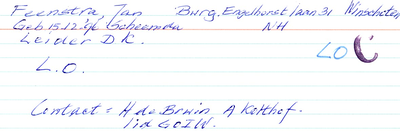 Feenstra, Jan Burg. Engelhorstlaan 31 Winschoten
Geb 15.12.96 Scheemda NH
Leider D.K.
LO
L.O.
Contact = H de Bruin A Kolthof.
lid GOIW.